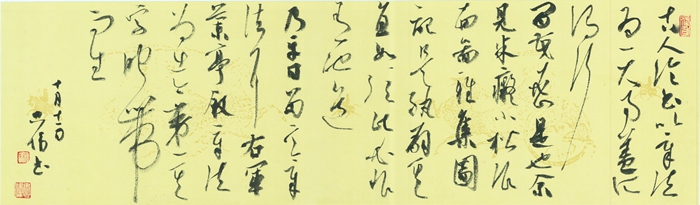 古人論書以章法
為一大事蓋所
謂行
間茂密是也余
見米癡小楷作
西園雅集圖
記是紈扇其
直如弦此必非
有他道
乃平日留意章
法耳右軍
蘭亭叙章法
為古今第一其
字映帶
而生
十月十一日
書